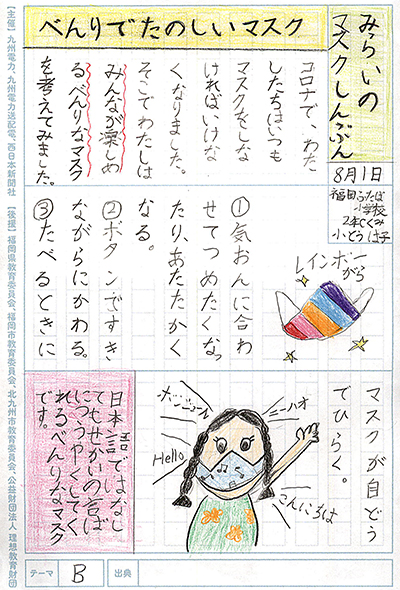 べんりでたのしいマスク
みらいの
マスクしんぶん
8月1日
小学校
コロナで、わた
したちはいつも
マスクをしな
ければいけな
くなりました。
そこでわたしは
みんなが楽しめ
るべんりなマスク
を考えてみました。
①気おんに合わ
せてつめたくなっ
たり、あたたかく
なる。
②ボタンですき
ながらにかわる。
③たべるときに
マスクが自どう
でひらく。
レインボー
がら
ボンジュール
ニーハオ
Hello
こんにちは
日本語ではなし
てもせかいの言ば
につうやくしてく
れるべんりなマスク
です。
テーマ
B
出典
【主催】九州電力、九州電力送配電、西日本新聞社 【後援】福岡県教育委員会、福岡市教育委員会、北九州市教育委員会、公益財団法人 理想教育財団